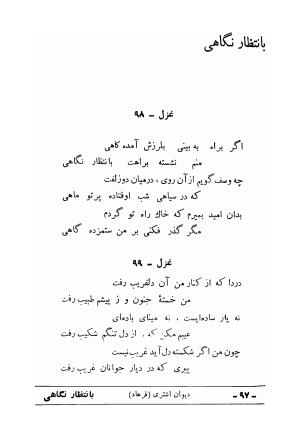 بانتظار نگاهی
غزل - ۹۸
اگر براه به بینی بلرزش آمده کاهی
منم نشسته براهت بانتظار نگاهی
چه وصف گویم از آن روی ، درمیان دوزلفت
که در سیاهی شب اوفتاده پرتو ماهی
بدان امید بمیرم که خاك راه تو گردم
مگر گذر فکنی بر من ستمزده گاهی
غزل - ۹۹
دردا که از کنار من آن دلفریب رفت
من خستهٔ جنون و ز پیشم طبیب رفت
نه یار ساده‌ایست ، نه مینای باده‌ای
عیبم مکن که ، از دل تنگم شکیب رفت
چون من اگر شکسته دل آید غریب نیست
پیری که در دیار جوانان غریب رفت
- ۹۷ - دیوان اشتری (فرهاد) بانتظار نگاهی